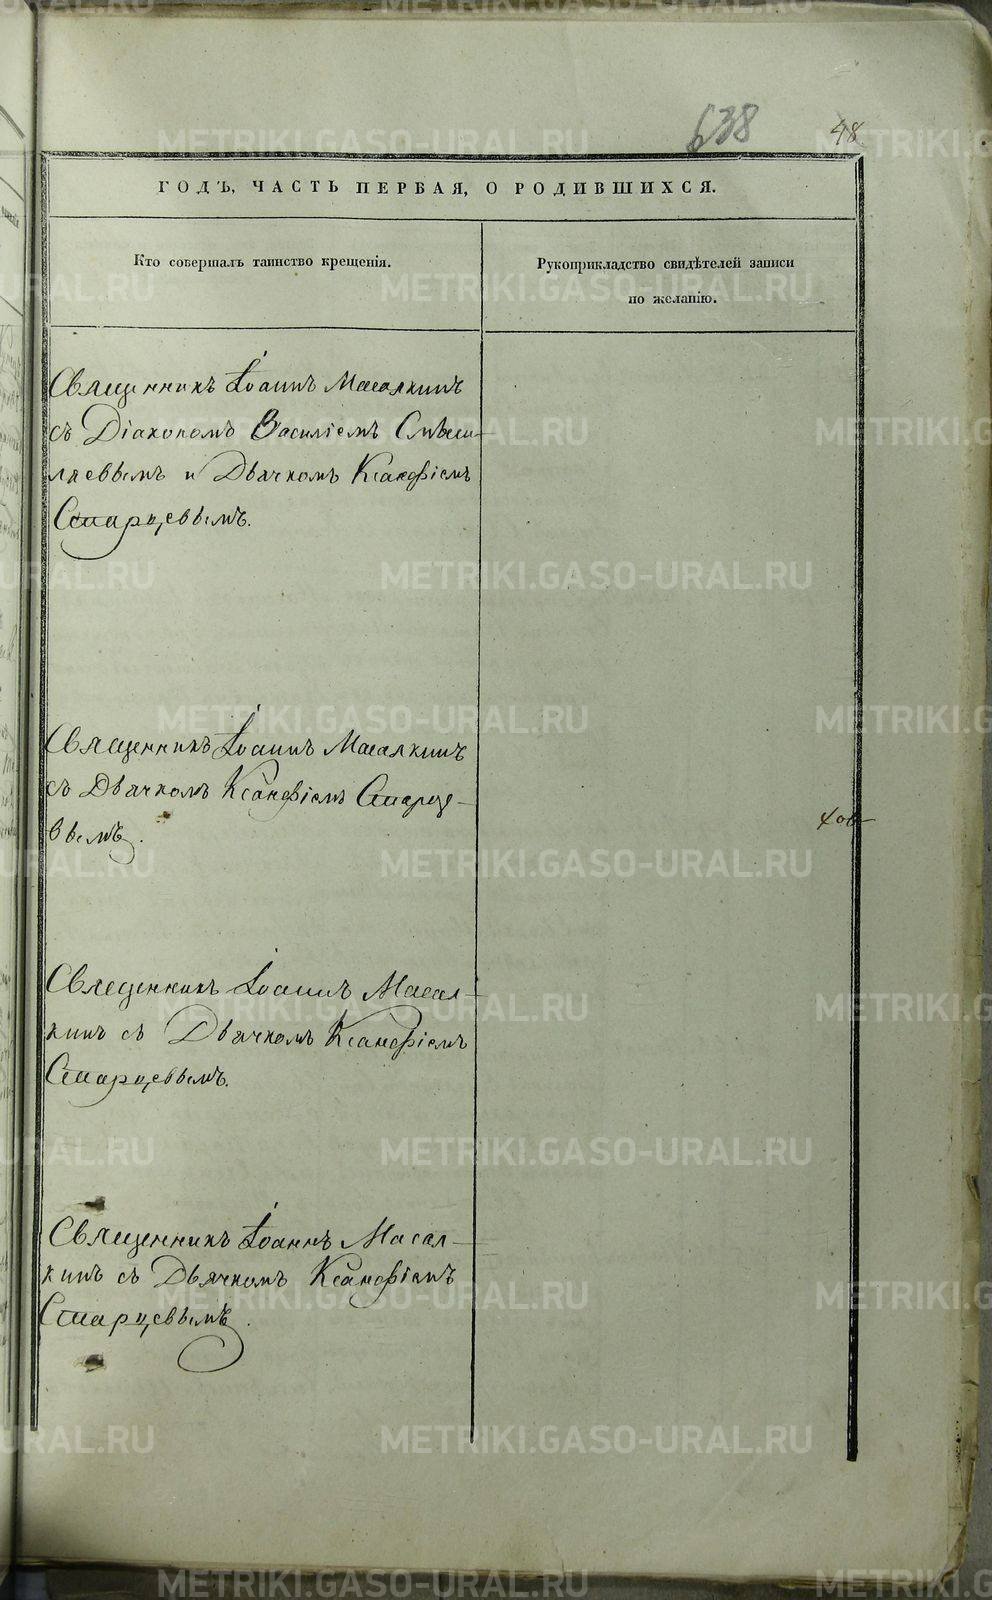 638
48
ГОДЪ, ЧАСТЬ ПЕРВАЯ, О РОДИВШИХСЯ.
Кто совершалъ таинство крещенія.
Рукоприкладство свидѣтелей записи
по желанію.
Священникъ Іоаннъ Масалкинъ
съ Діакономъ Василіемъ
и Дьячкомъ Ксанфіемъ
Старцевымъ.
Священникъ Іоаннъ Масалкинъ
съ Дьячкомъ Ксанфіемъ Старце-
вымъ.
Священникъ Іоаннъ Масал-
кинъ съ Дьячкомъ Ксанфіемъ
Старцевымъ.
Священникъ Іоаннъ Масал-
кинъ съ Дьячкомъ Ксанфіемъ
Старцевымъ.
METRIKI.GASO-URAL.RU